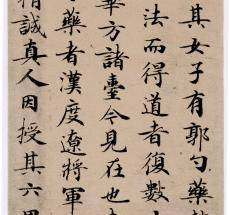 其女子有郭勺藥
法而得道者復數
華方諸臺今見在也
藥者漢度遼將軍
誠真人因授其六